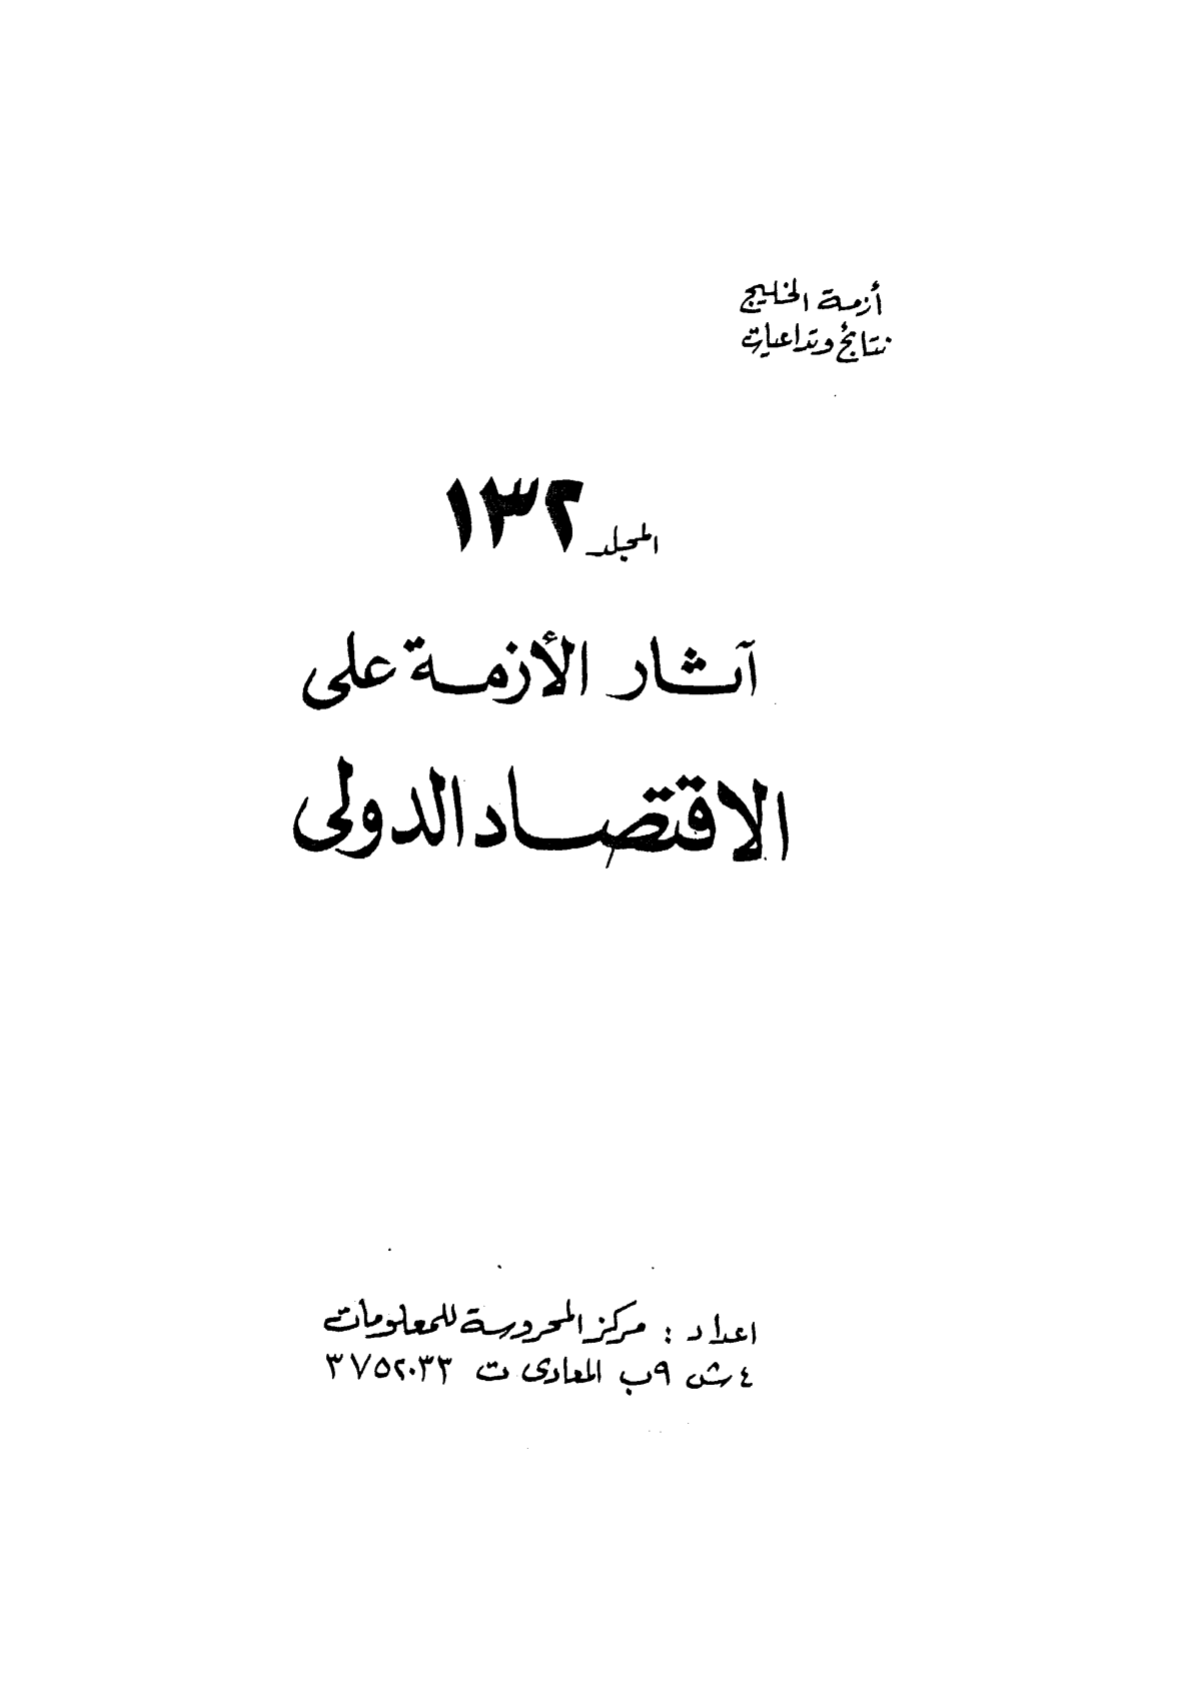 أزمة الخليج
نتائج وتداعيات
المجلد ١٣٢
آثار الأزمة على
الاقتصاد الدولى
اعداد : مركز المحروسة للمعلومات
٤ ش ٩ب المعادى ت ٣٧٥٢٠٣٣